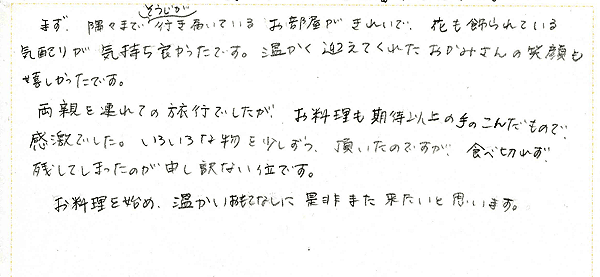 まず、隅々まで行き届いている お部屋が きれいで、花も飾られている
気配りが 気持ち良かったです。温かく 迎えてくれた おかみさんの 笑顔も
嬉しかったです。
両親を連れての旅行でしたが、お料理も期待以上の手のこんだもので、
感激でした。いろいろな物を少しずつ、頂いたのですが、食べ切れず、
残してしまったのが申し訳ない位です。
お料理を始め、温かいおもてなしに 是非また 来たいと 思います。